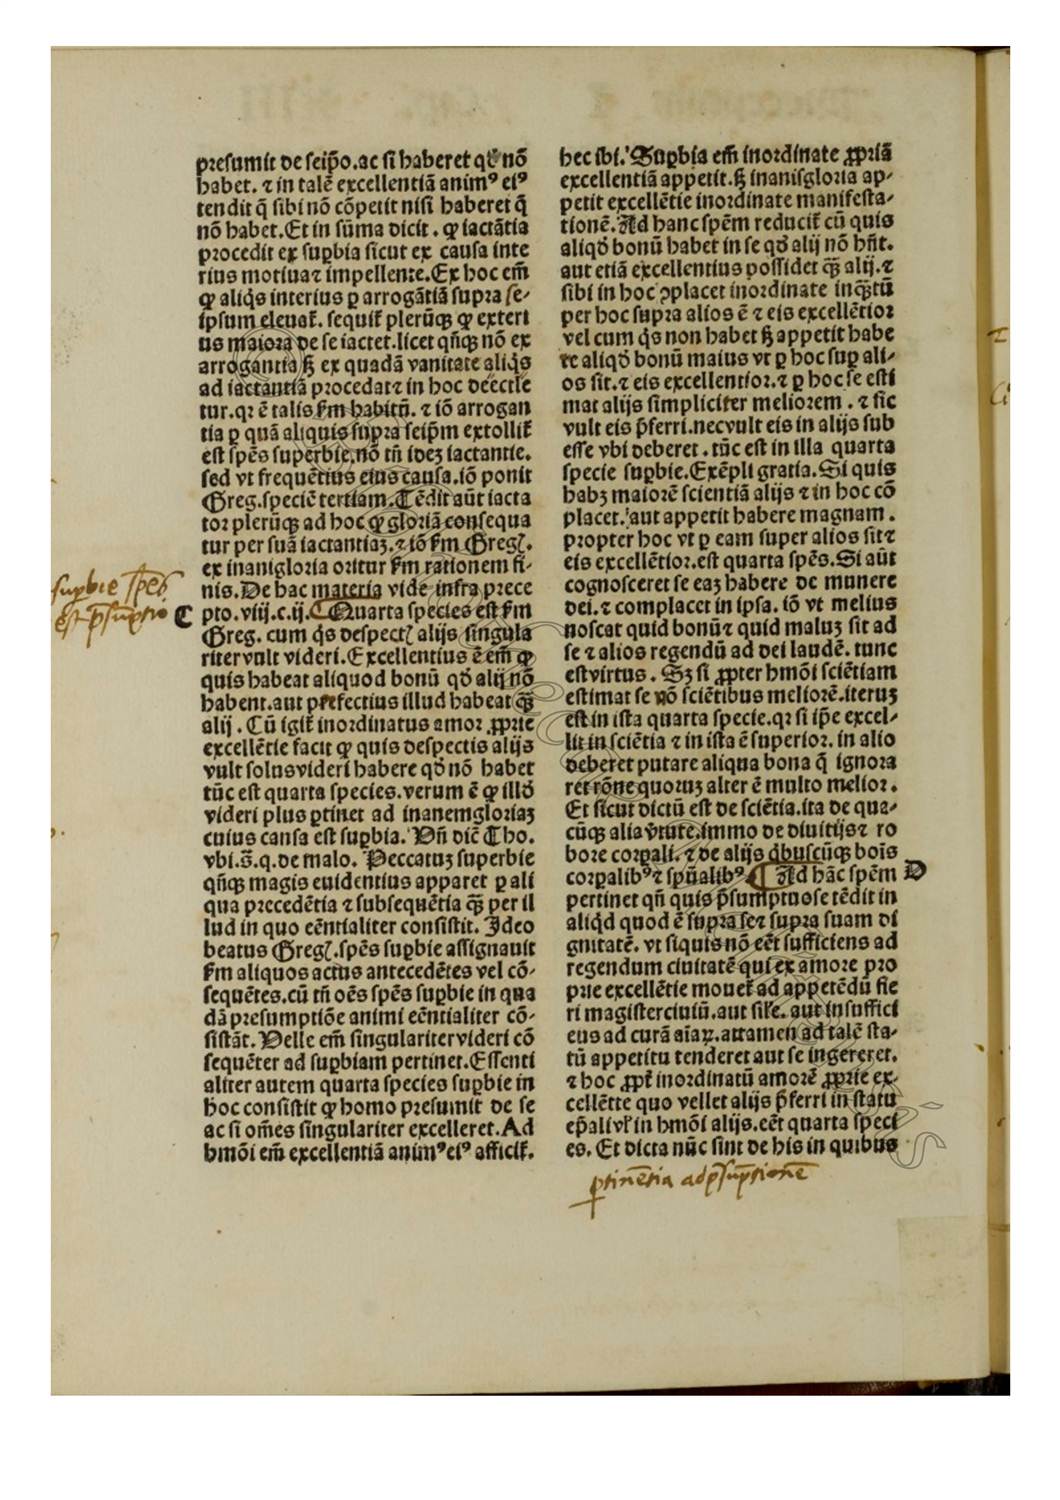 presumit de seip̄o.ac si haberet qd̛ nō
habet. ⁊ in talē excellentiā animꝰ eiꝰ
tendit q̄ sibi nō cōpetit nisi haberet q̄
nō habet.Et in sūma dicit . ꝙ iactātia
procedit ex suꝑbia sicut ex causa inte
rius motiua⁊ impellente.Ex hoc em̄
ꝙ aliq̇s interius ꝑ arrogātiā supra se-
ipsum eleuat᷑. sequit᷑ plerūqꝫ ꝙ exteri
us maiora de se iactet.licet qn̄qꝫ nō ex
arrogantia ꝫ ex quadā vanitate aliq̇s
ad iactantiā procedat⁊ in hoc delecte
tur.qꝛ ē talis ẜm habitū. ⁊ iō arrogan
tia ꝑ quā aliquis supra seip̄m extollit᷑
est spēs superbie,nō tn̄ ideꝫ iactantie.
sed vt frequētius eius causa.iō ponit
Greg.speciē tertiam.Tēdit aūt iacta
tor plerūqꝫ ad hoc ꝙ gloriā consequa
tur per suā iactantiaꝫ.⁊ iō ẜm Greg̃.
ex inanigloria oritur ẜm rationem fi-
nis.De hac materia vide infra prece
pto.viij.c.ij.¶Quarta species est ẜm
Greg. cum q̇s despect̃ alijs singula
riter vult videri.Excellentius ē em̄ ꝙ
quis habeat aliquod bonū qd̛ alij nō
habent.aut perfectius illud habeat qꝫ̄
alij . Cū igit᷑ inordinatus amor ꝓprie
excellētie facit ꝙ quis despectis alijs
vult solusvideri habere qd̛ nō habet
tūc est quarta species.verum ē ꝙ illd̛
videri plus ꝑtinet ad inanemgloriaꝫ
cuius causa est suꝑbia. Vn̄ dic̄ Tho.
vbi.s̄.q.de malo. Peccatuꝫ superbie
qn̄qꝫ magis euidentius apparet ꝑ ali
qua precedētia ⁊ subsequētia qꝫ̄ per il
lud in quo eēntialiter consistit. Ideo
beatus Greg̃.spēs suꝑbie assignauit
ẜm aliquos actus antecedētes vel cō-
sequētes.cū tn̄ oēs spēs suꝑbie in qua
dā presumptiōe animi eēntialiter cō-
sistāt. Velle em̄ singulariter videri cō
sequēter ad suꝑbiam pertinet.Essenti
aliter autem quarta species suꝑbie in
hoc consistit ꝙ homo presumit de se
ac si om̄es singulariter excelleret.Ad
hmōi em̄ excellentiā animꝰeiꝰ afficit᷑.
suꝑbie spēs
est p̄sūptio
C
hec ibi. Suꝑbia em̄ inordinate ꝓpriā
excellentiā appetit.ꝫ inanisgloria ap-
petit excellētie inordinate manifesta-
tionē. Ad hanc spēm reducit᷑ cū quis
aliqd̛ bonū habet in se qd̛ alij nō hn̄t.
aut etiā excellentius possidet qꝫ̄ alij.⁊
sibi in hoc ꝯplacet inordinate inqꝫ̄tū
per hoc supra alios ē ⁊ eis excellētior
vel cum q̇s non habet ꝫ appetit habe
re aliqd̛ bonū maius vt ꝑ hoc suꝑ ali-
os sit.⁊ eis excellentior.⁊ ꝑ hoc se esti
mat alijs simpliciter meliorem . ⁊ sic
vult eis p̄ferri.necvult eis in alijs sub
esse vbi deberet . tūc est in illa quarta
specie suꝑbie.Exēpli gratia.Si quis
habꝫ maiorē scientiā alijs ⁊ in hoc cō
placet. aut appetit habere magnam .
propter hoc vt ꝑ eam super alios sit⁊
eis excellētior.est quarta spēs.Si aūt
cognosceret se eaꝫ habere de munere
dei.⁊ complacet in ipsa. iō vt melius
noscat quid bonū⁊ quid maluꝫ sit ad
se ⁊ alios regendū ad dei laudē. tunc
estvirtus . Sꝫ si ꝓpter hmōi sciētiam
estimat se nō sciētibus meliorē.iteruꝫ
est in ista quarta specie.qꝛ si ip̄e excel-
lit in sciētia ⁊ in ista ē superior. in alio
deberet putare aliqua bona q̄ ignora
ret rōne quoruꝫ alter ē multo melior.
Et sicut dictū est de sciētia.ita de qua-
cūqꝫ alia v̄tute.immo de diuitijs⁊ ro
bore corꝑali. ⁊ de alijs q̇buscūqꝫ boīs
corꝑalibꝰ⁊ spūalibꝰ.¶ Ad hāc spēm
pertinet qn̄ quis p̄sumptuose tēdit in
aliq̇d quod ē supra se⁊ supra suam di
gnitatē. vt siquis nō eēt sufficiens ad
regendum ciuitatē qui ex amore pro
prie excellētie mouet᷑ ad appetēdū fie
ri magisterciuiū.aut sil̛e. aut insuffici
ens ad curā aīaꝝ.attamen ad talē sta-
tū appetitu tenderet aut se ingereret.
⁊ hoc ꝓpt̛ inordinatū amorē ꝓprie ex-
cellētie quo vellet alijs p̄ferri in statu
ep̄alivl̛ in hmōi alijs.eēt quarta speci
es. Et dicta nūc sint de his in quibus
D
ꝑtinētia ad p̄sūptionē